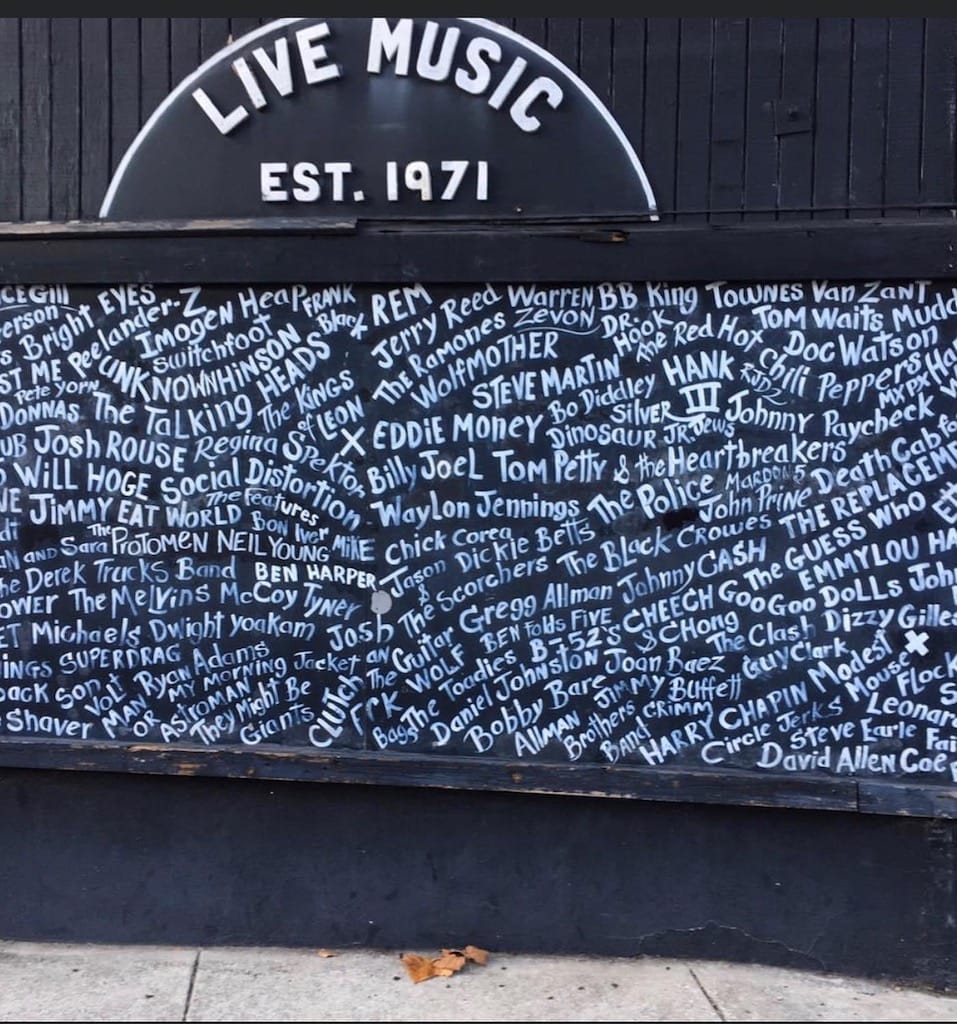 LIVE MUSIC
EST. 1971
CE Gill
EYES
Peelander-Z
Imogen Heap
FRANK
Black
REM
Jerry Reed
WARREN
ZEVON
BB King
TOWNES Van ZanT
erson
Bright
Switchfoot
The Ramones
DR. HOOK
The Red Hot Chili Peppers
TOM WaiTs
Mudd
ST ME
UNKNOWNHINSON
WOLFMOTHER
Doc WaTson
Pete Yorn
DONNAS
The TaLking HEADS
The KINGS of LEON
STEVE MARTIN
HANK III
RJD2
MXPX
Bo Diddley
SILVER Jews
Johnny Paycheck
UB
Josh ROUSE
Regina SpekTor
X
EDDIE MONEY
Dinosaur JR.
WILL HOGE
Social DisTorTion
BiLLy JoeL
Tom PeTTy & the HearTbreakers
JIMMY EAT WORLD
The Features
Bon Iver
WayLon Jennings
The PoLice
MAROON 5
John PRine
DeaTh Cab fo
and Sara
The ProTomen
NEIL YOUNG
MIKE
Chick Corea
Dickie BeTTs
The BLack Crowes
THE REPLACEME
The Derek Trucks Band
BEN HARPER
Jason & The Scorchers
Johnny CASH
The GUESS Who
OWER
The MeLvins
McCoy Tyner
Gregg ALLman
CHEECH & Chong
GooGoo DOLLS
EMMYLOU HA
John
Michaels
DwighT yoakam
Josh
GuiTar WOLF
BEN FOLDS FIVE
B-52's
The CLash
Dizzy GiLLes
INGS
SUPERDRAG
Ryan Adams
MY MORNING JackeT
The Toadies
Joan Baez
Guy CLark
ModesT Mouse
X
FLock
son VoLT
MAN OR ASTROMAN
They MighT Be GianTs
CLUTCH
The
Bags
DanieL JohnsTon
Jimmy BuffeTT
Shaver
Bobby Bare
ALLMAN BroThers Band
CRIMM
HARRY CHAPIN
CircLe Jerks
STeve EarLe
Leonar
Fai
David ALLen Coe